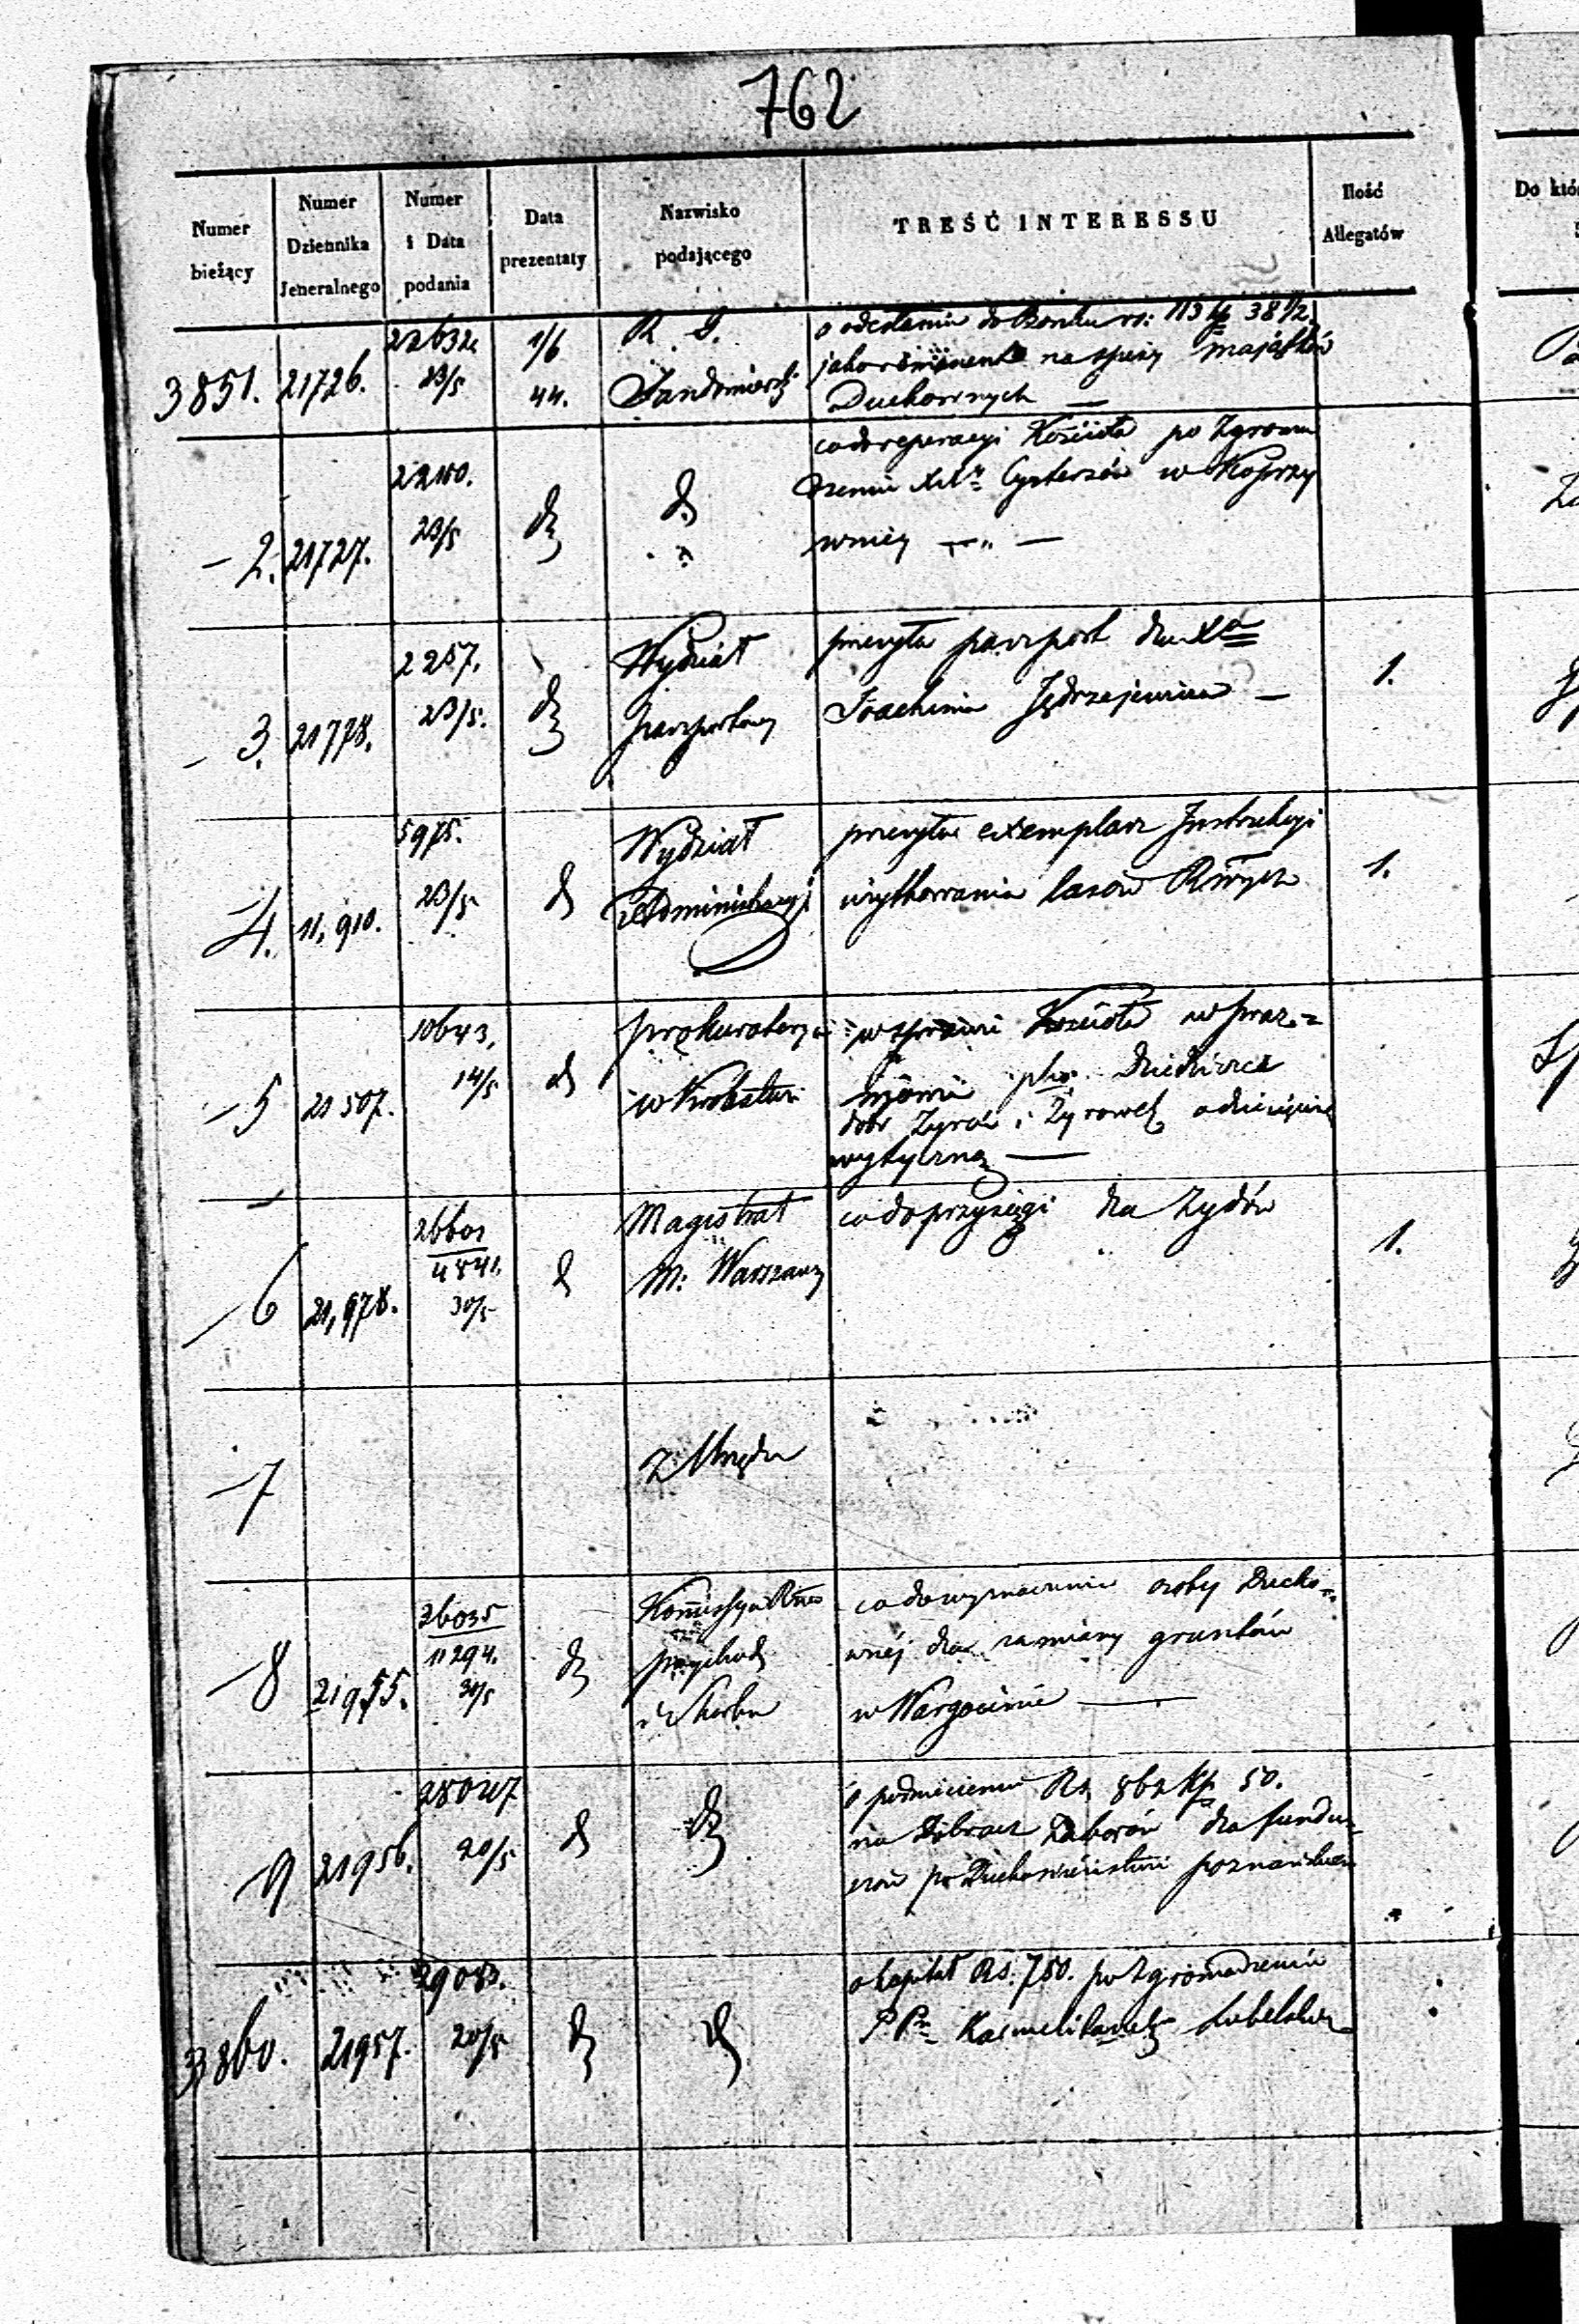 762
Numer bieżący
Numer Dziennika Jeneralnego
Numer i Data podania
Data prezentaty
Nazwisko podającego
TREŚĆ INTERESSU
Ilość Allegatów
Do któ
3851. 21726. 22632 23/5 1/6 44. R. G. Sandomierski
o odesłaniu do Banku rs: 113 kp 38 1/2.
jako remanent na spisy majątków
Duchownych —
— 2. 21727. 23/5
co do reperacyi Kościoła po Zgroma
dzeniu XXw Cystersów w Koprzy
wnicy — „ —
— 3. 21778. 2257. 23/5. Wydział paszportowy
przesyła paszport dla Xa
Joachima Jędrzejewicza — 1.
4. 11,910. 5975. 23/5 Wydział Administracyi
przesyła exemplarz Instrukcyi
użytkowania lasów 1.
— 5 21507. 10643. 14/5 prokuratorya w Królestwie
w sprawie Kościoła w
plko Dziedzicce
dóbr Zyrów i Zyrówek o dziesięcinę
wytyczną —
— 6 21,978. 26601 4841. 30/5 Magistrat m: Warszawy
co do przysięgi dla Żydów 1.
— 7 z Urzędu
— 8 21955. 36035 11294. 30/5 Kommissya Rna przychod. i Skarbu
co do wyznaczenia osoby Ducho=
wnéj dla zamiany gruntów
w Wargocinie —
— 9 21956. 20/5
o podniesienie Rs 862 kp 50.
na Dobrach Zaborów dla fundu
szów po Duchowieństwie poznańskiem
3860. 21957. 29083. 20/5
o kapitał Rs. 750. po Zgromadzeniu
PPn Karmelitanek Lubelskich